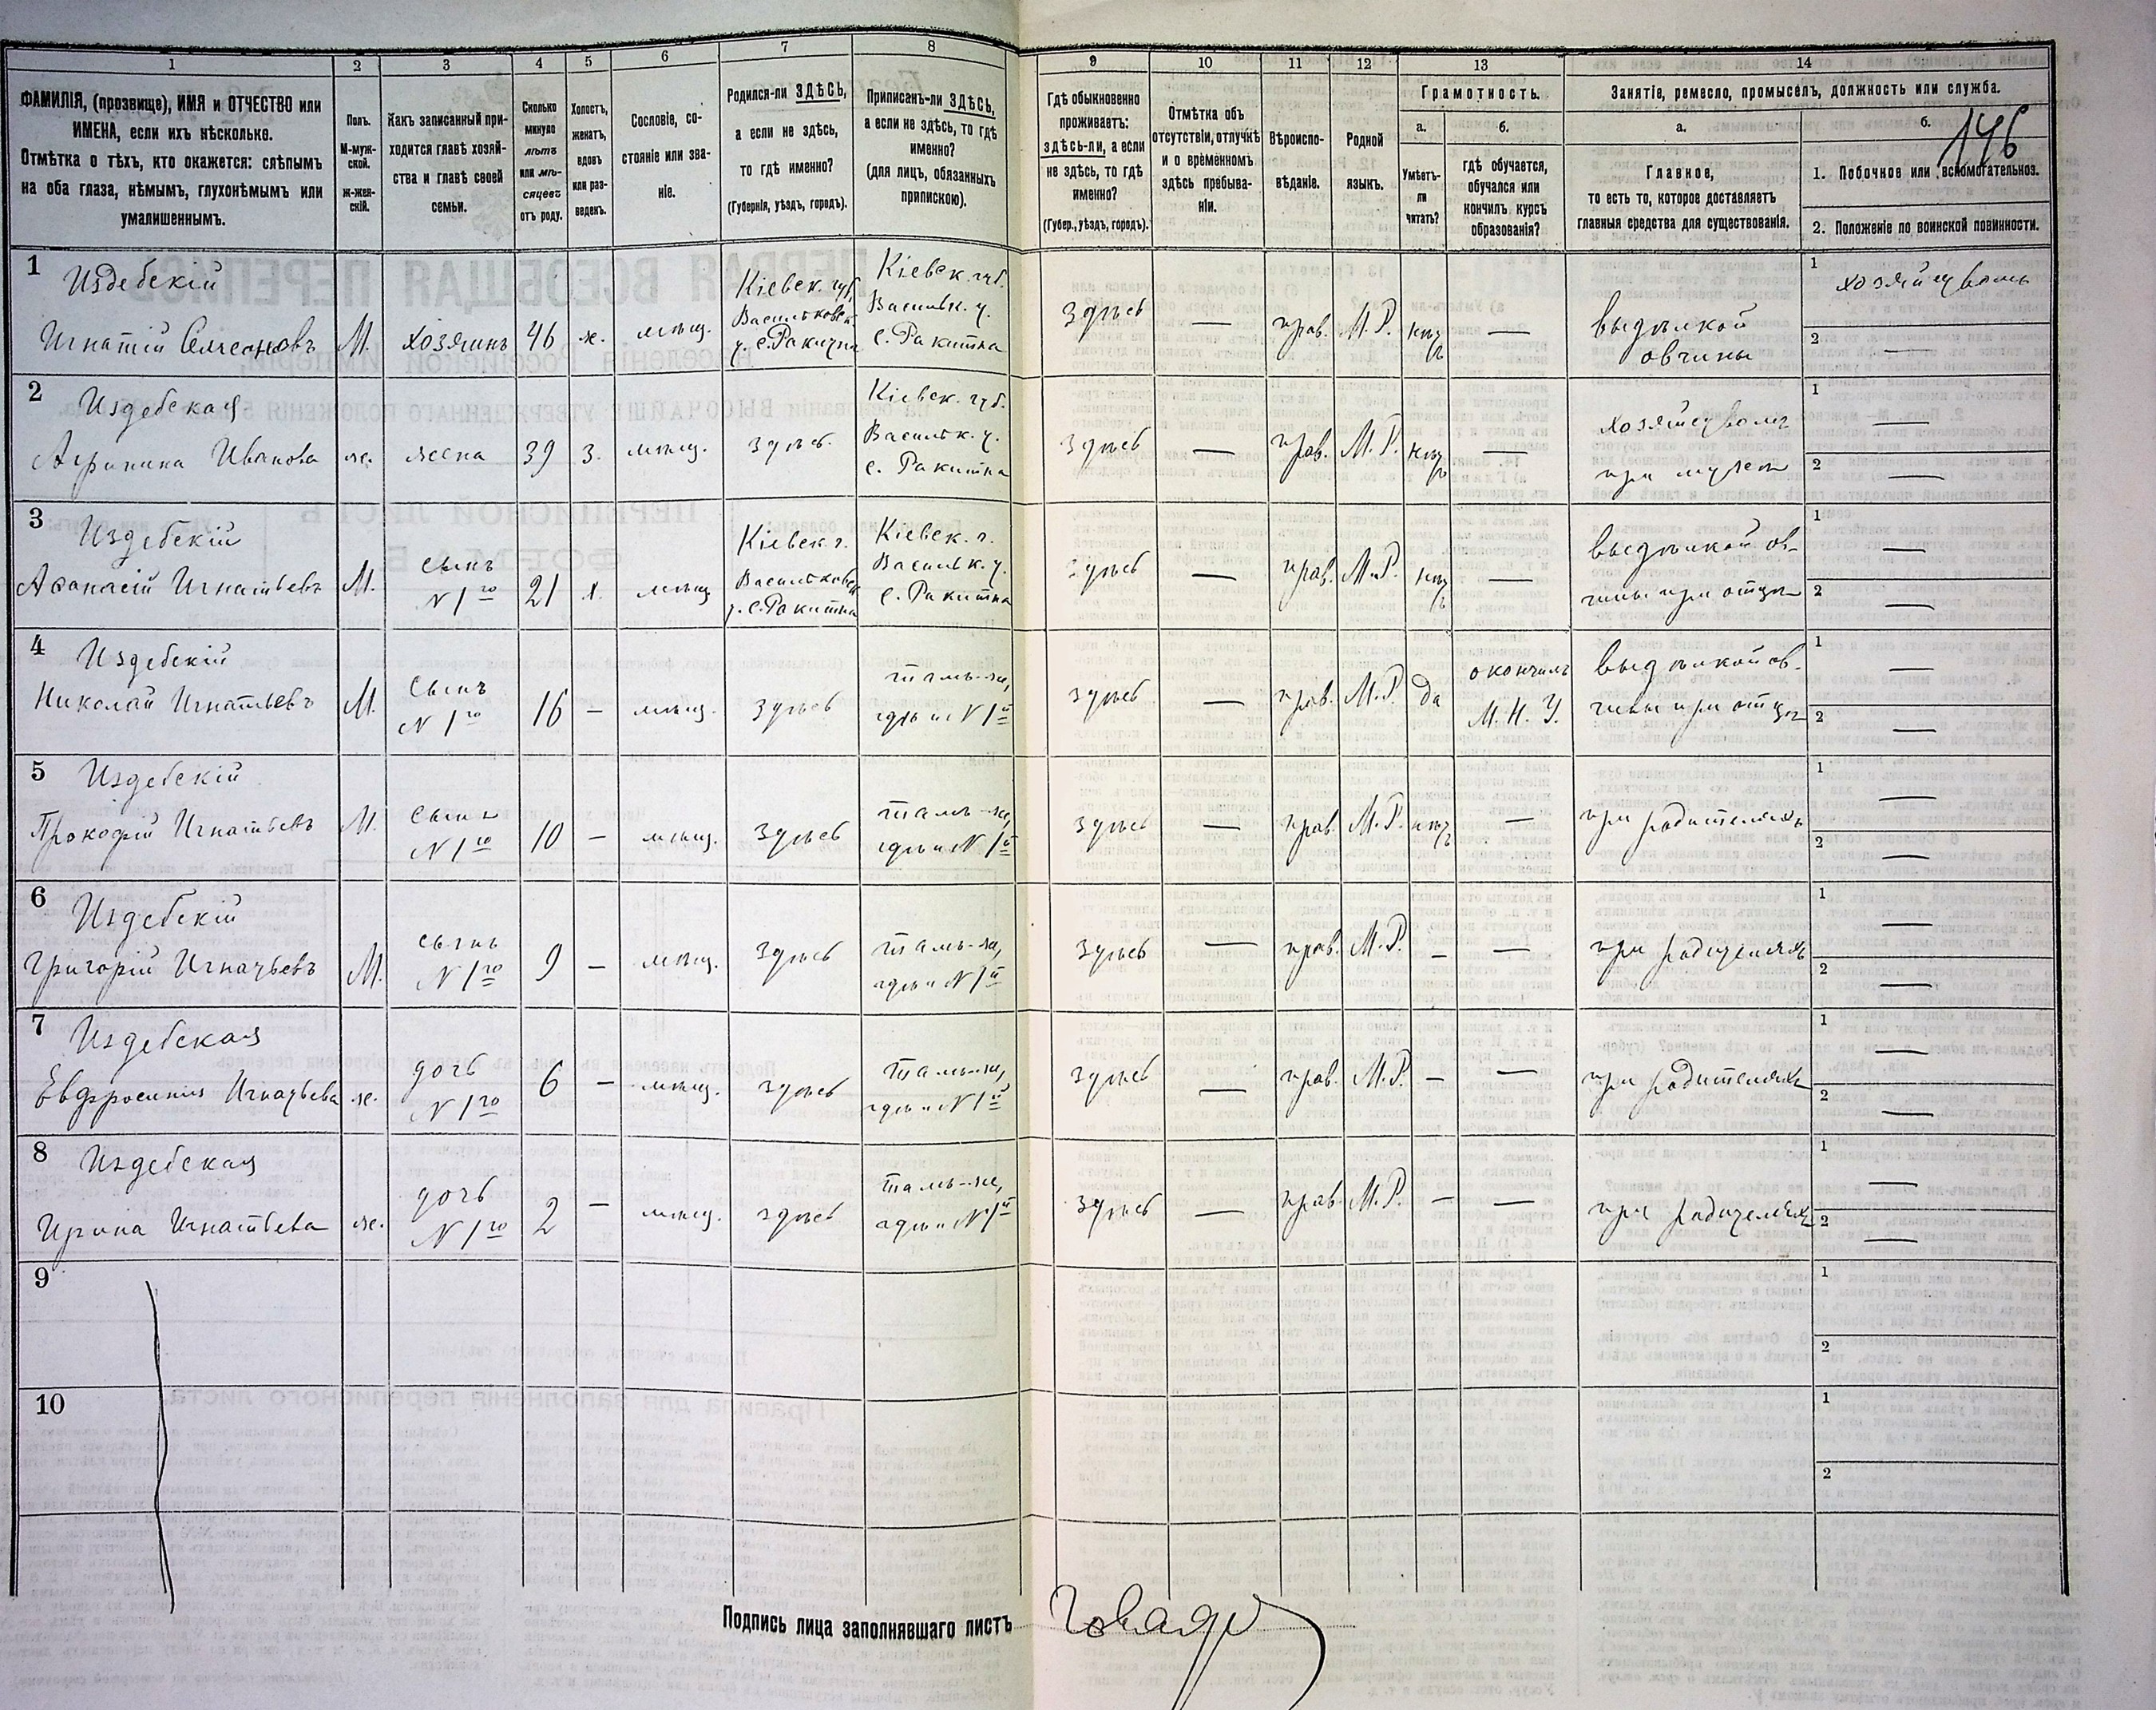 1 2 3 4 5 6 7 8 9 10 11 12 13 14
ФАМИЛІЯ, (прозвище), ИМЯ и ОТЧЕСТВО или
ИМЕНА, если ихъ нѣсколько.
Отмѣтка о тѣхъ, кто окажется: слѣпымъ
на оба глаза, нѣмымъ, глухонѣмымъ или
умалишеннымъ.
Полъ.
М-муж-
ской.
ж-жен-
скій.
Какъ записанный при-
ходится главѣ хозяй-
ства и главѣ своей
семьи.
Сколько
минуло
лѣтъ
или мѣ-
сяцевъ
отъ роду.
Холостъ,
женатъ,
вдовъ
или раз-
веденъ.
Сословіе, со-
стояніе или зва-
ніе.
Родился-ли ЗДѢСЬ,
а если не здѣсь,
то гдѣ именно?
(Губернія, уѣздъ, городъ).
Приписанъ-ли ЗДѢСЬ,
а если не здѣсь, то гдѣ
именно?
(для лицъ, обязанныхъ
припискою).
Гдѣ обыкновенно
проживаетъ:
здѣсь-ли, а если
не здѣсь, то гдѣ
именно?
(Губер., уѣздъ, городъ).
Отмѣтка объ
отсутствіи, отлучкѣ
и о временномъ
здѣсь пребыва-
ніи.
Вѣроиспо-
вѣданіе.
Родной
языкъ.
Грамотность.
а.
Умѣетъ-
ли
читать?
б.
гдѣ обучается,
обучался или
кончилъ курсъ
образованія?
Занятіе, ремесло, промыселъ, должность или служба.
а.
Главное,
то есть то, которое доставляетъ
главныя средства для существованія.
б.
146
1. Побочное или вспомогательное.
2. Положеніе по воинской повинности.
1 Издебскій
Игнатій Семеоновъ
М. хозяинъ 46 ж. мѣщ.
Кіевск. губ.
Васильковск.
у. с. Ракитна
Кіевск. губ.
Васильк. у.
с. Ракитна
Здѣсь — прав. М.Р. нѣтъ —
выдѣлкой
овчины
1 хозяйствомъ
2 —
2 Издебская
Агрипина Иванова
ж. жена 39 з. мѣщ. здѣсь.
Кіевск. губ.
Васильк. у.
с. Ракитна
здѣсь — прав. М.Р. нѣтъ —
хозяйствомъ
при мужѣ
1 —
2 —
3 Издебскій
Афанасій Игнатьевъ
М.
сынъ
N 1го
21 х. мѣщ
Кіевск. г.
Васильковск.
у. с. Ракитна
Кіевск. г.
Васильк. у.
с. Ракитна
здѣсь — прав. М.Р. нѣтъ —
выдѣлкой ов-
чины при отцѣ
1 —
2 —
4 Издебскій
Николай Игнатьевъ
М.
сынъ
N 1го
16 — мѣщ. здѣсь
тамъ-же,
гдѣ и N 1й
здѣсь — прав. М.Р. да
окончилъ
М. Н. У.
выдѣлкой ов-
чины при отцѣ
1 —
2 —
5 Издебскій
Прокофій Игнатьевъ
М.
сынъ
N 1го
10 — мѣщ. здѣсь
тамъ-же,
гдѣ и N 1й
здѣсь — прав. М.Р. нѣтъ —
при родителяхъ
1 —
2 —
6 Издебскій
Григорій Игнатьевъ
М.
сынъ
N 1го
9 — мѣщ. здѣсь
тамъ-же,
гдѣ и N 1й
здѣсь — прав. М.Р. — —
при родителяхъ
1 —
2 —
7 Издебская
Евфросинія Игнатьева
ж.
дочь
N 1го
6 — мѣщ. здѣсь
тамъ-же,
гдѣ и N 1й
здѣсь — прав. М.Р. — —
при родителяхъ
1 —
2 —
8 Издебская
Ирина Игнатьева
ж.
дочь
N 1го
2 — мѣщ. здѣсь
тамъ-же,
гдѣ и N 1й
здѣсь — прав. М.Р. — —
при родителяхъ
1 —
2 —
9
1
2
10
1
2
Подпись лица заполнявшаго листъ